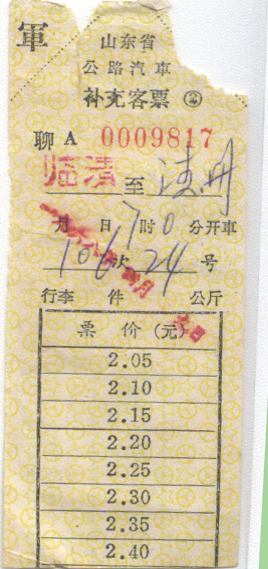 軍
山东省
公路汽車
补充客票 ②
聊 A 0009817
临清 至
月 日 7 時 0 分开車
次 24 号
行李 件 公斤
票 价 (元)
2.05
2.10
2.15
2.20
2.25
2.30
2.35
2.40